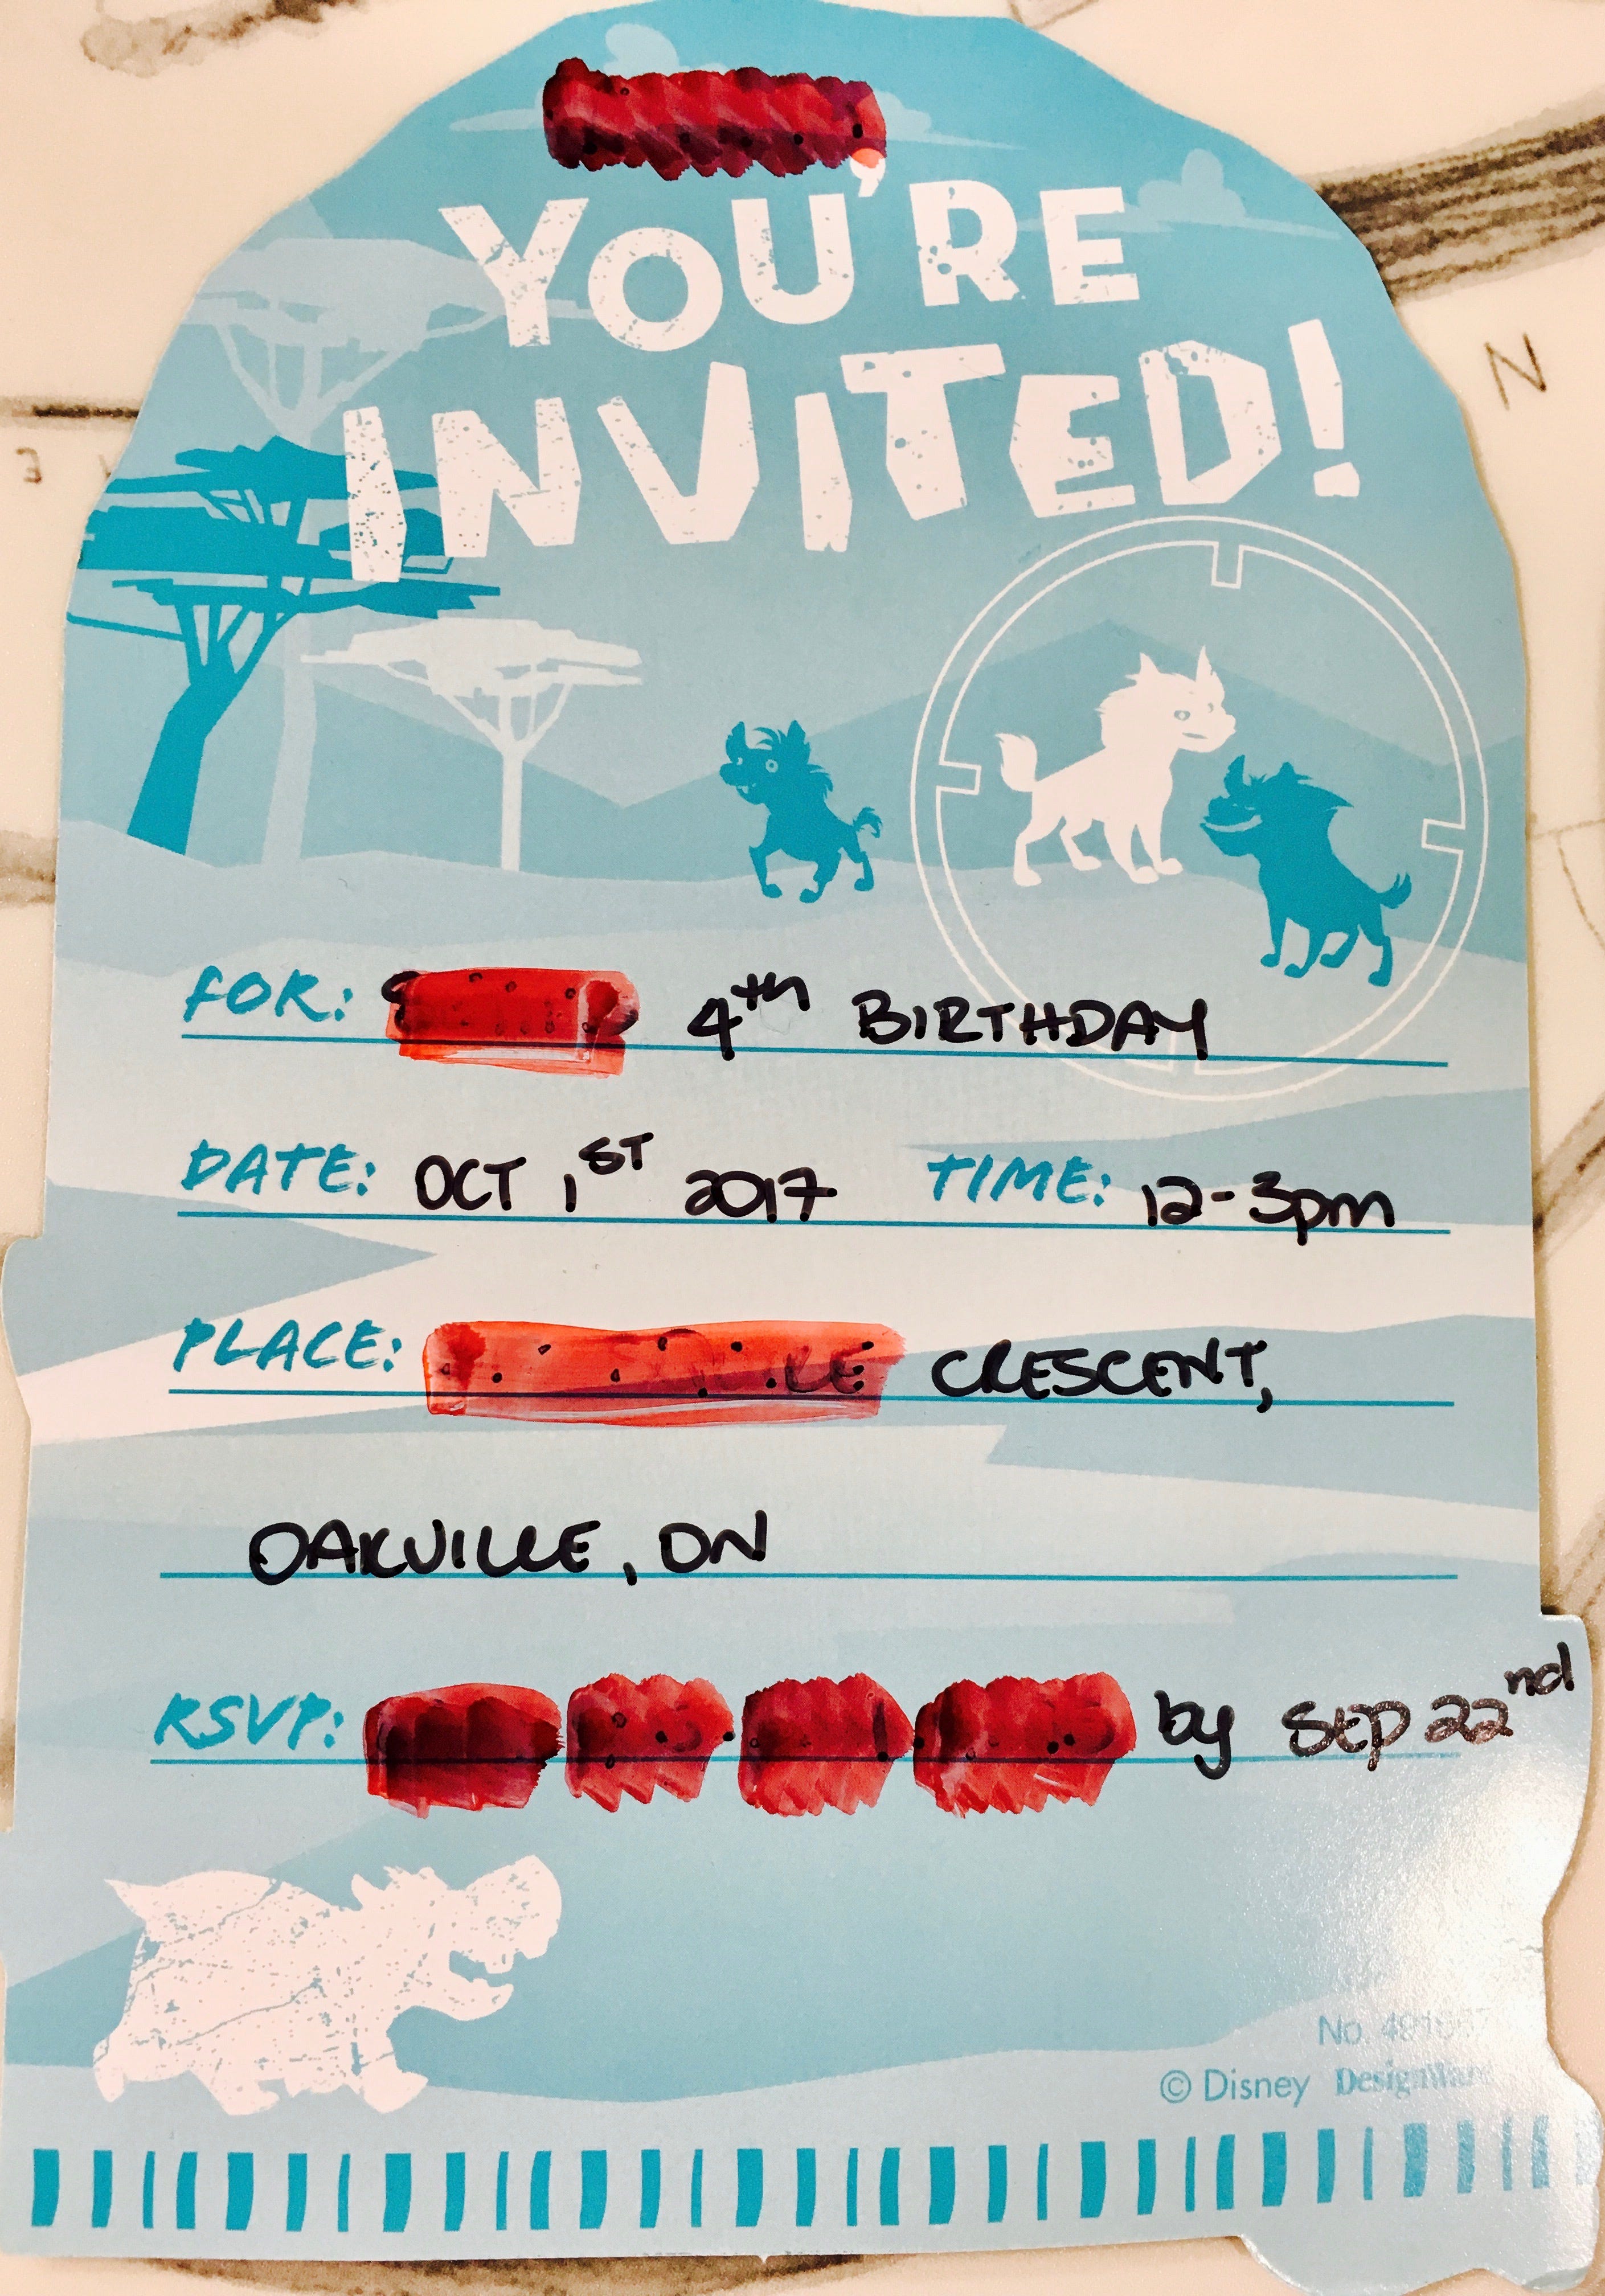 YOU'RE
INVITED!
FOR: 4th BIRTHDAY
DATE: OCT 1ST 2017 TIME: 12-3pm
PLACE: CRESCENT,
OAKVILLE, ON
RSVP: by SEP 22nd
No.
© Disney DesignWare
N